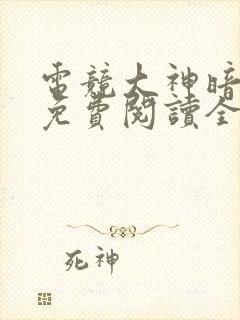 電競大神暗
免費閱讀全
死神